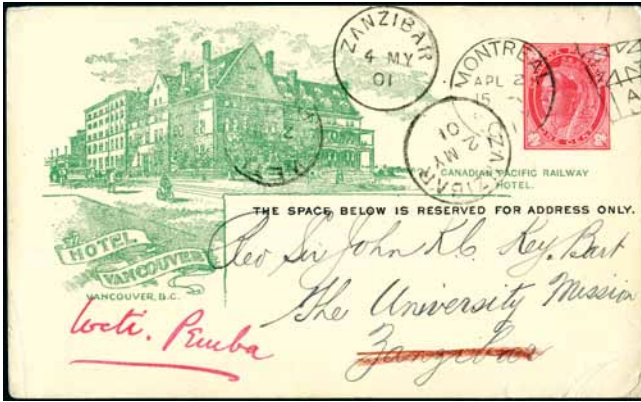 ZANZIBAR
4 MY
01
MONTREAL
APL 2
15
ZANZIBAR
2 MY
01
CANADIAN PACIFIC RAILWAY
HOTEL.
THE SPACE BELOW IS RESERVED FOR ADDRESS ONLY.
HOTEL
VANCOUVER
VANCOUVER, B.C.
Rev Sir John K.C. Key, Bart
The University Mission
Zanzibar
Weti. Pemba